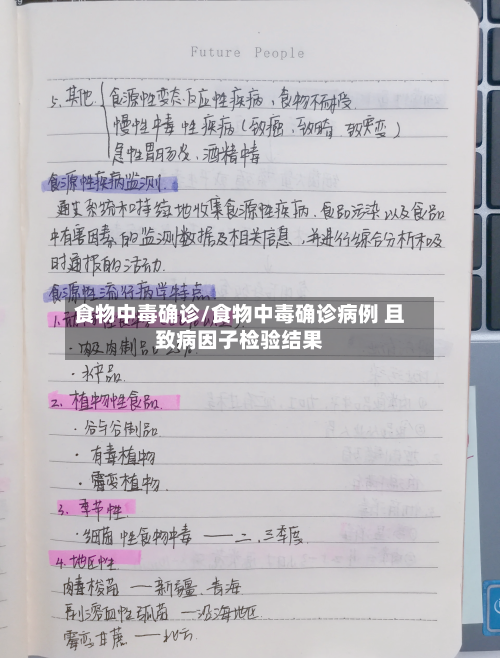 Future People
5. 其他 食源性变态反应性疾病，食物不耐受
慢性中毒性疾病（致癌，致畸，致突变）
急性胃肠炎，酒精中毒
食源性疾病监测.
通过系统和持续地收集食源性疾病、食品污染以及食品
中有害因素的监测数据及相关信息，并进行综合分析和及
时通报的活动.
食源性流行病学特点
食物中毒确诊/食物中毒确诊病例 且
致病因子检验结果
1.
肉制品
·水产品.
2. 植物性食品.
·谷与谷制品
·有毒植物
·霉变植物.
3. 季节性.
·细菌性食物中毒——二、三季度.
4. 地区性.
肉毒梭菌——新疆、青海
副溶血性弧菌——沿海地区
霉变甘蔗——北方